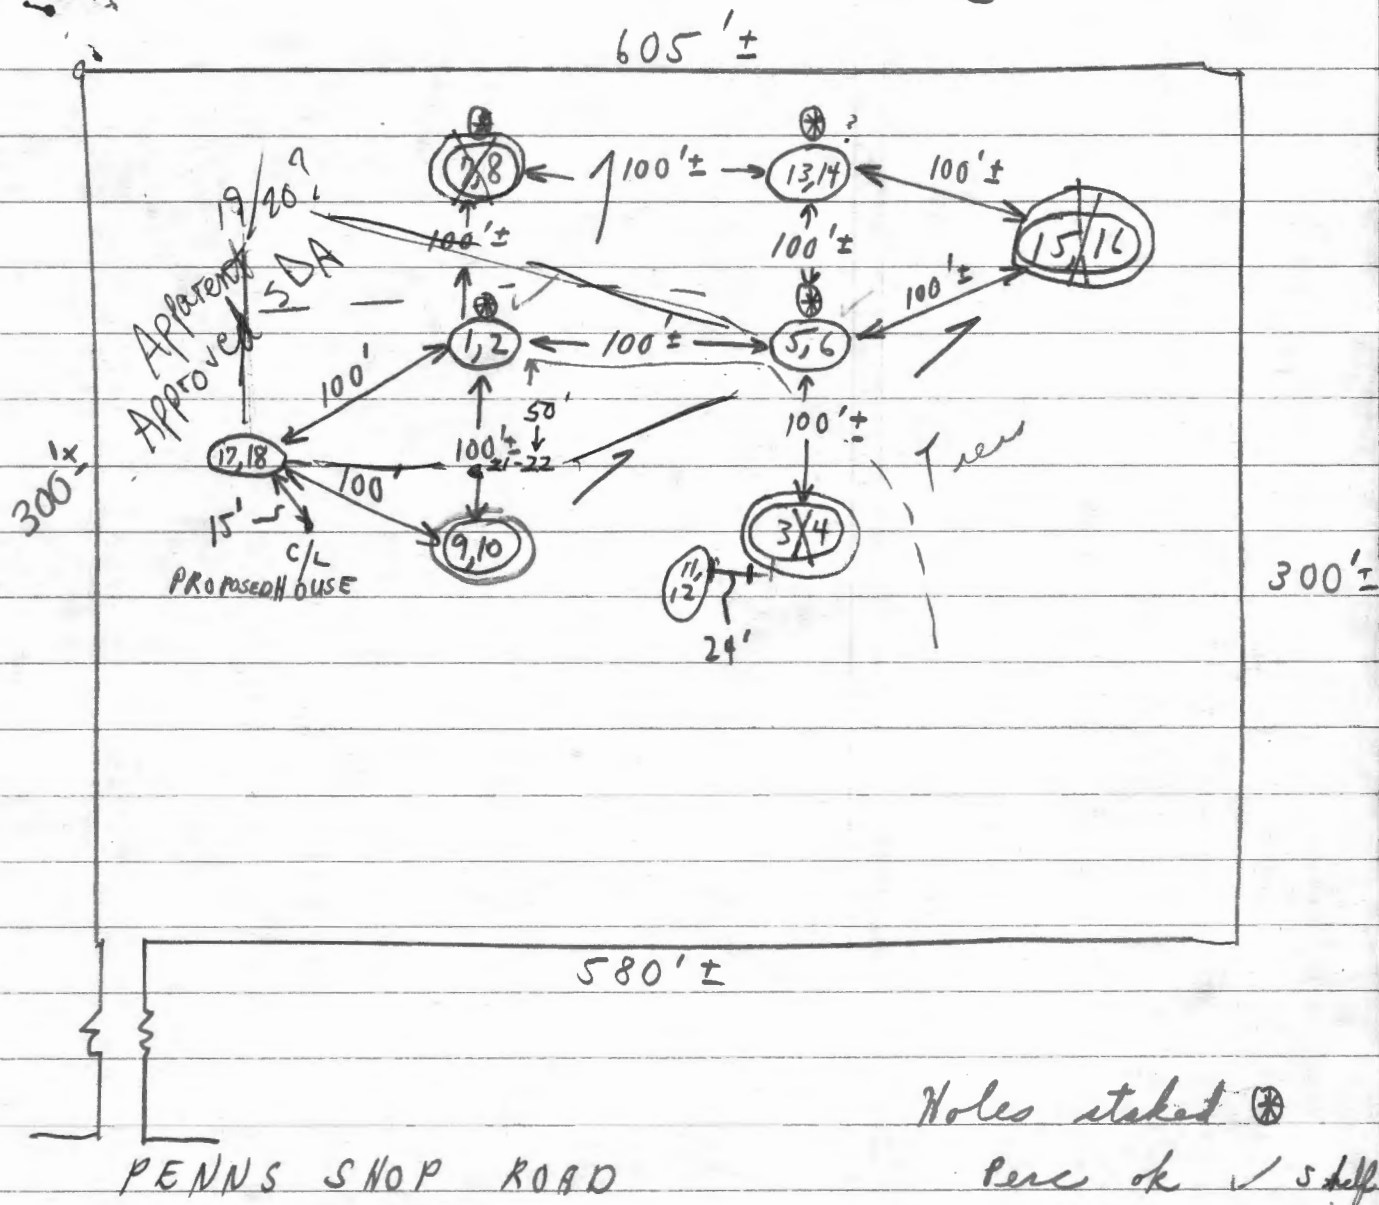 605'±
7,8
100'±
13,14
?
100'±
15,16
19/20?
100'±
100'±
Apparent
Approved SDA
100'±
1,2
100'±
5,6
100'
50'
100'±
100'±
Trees
17,18
21-22
300'±
100'
15'
9,10
3/4
C/L
PROPOSED HOUSE
11,
12
24'
300'±
580'±
Holes staked
PENNS SHOP ROAD
Perc ok ✓